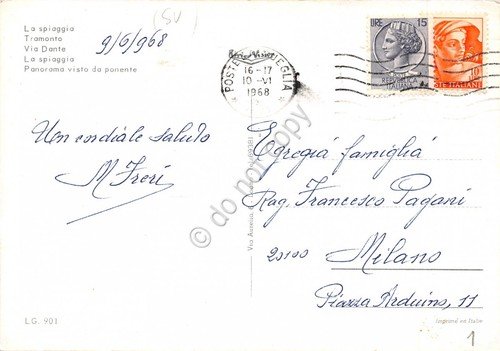 La spiaggia
Tramonto
Via Dante
La spiaggia
Panorama visto da ponente
(SV)
9/6/968
16-17
10-VI
1968
LIRE 15
REPUBBLICA
ITALIANA
10
POSTE ITALIANE
Un cordiale saluto
M Freri
Egregia famiglia
Rag. Francesco Pagani
20100 Milano
Piazza Arduino, 11
do not copy
LG. 901
Imprimé en Italie
1